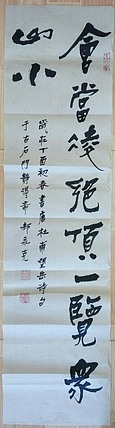 會當凌絕頂一覽眾
山小
歲在丁酉初春書唐杜甫望岳詩句
于古石門靜